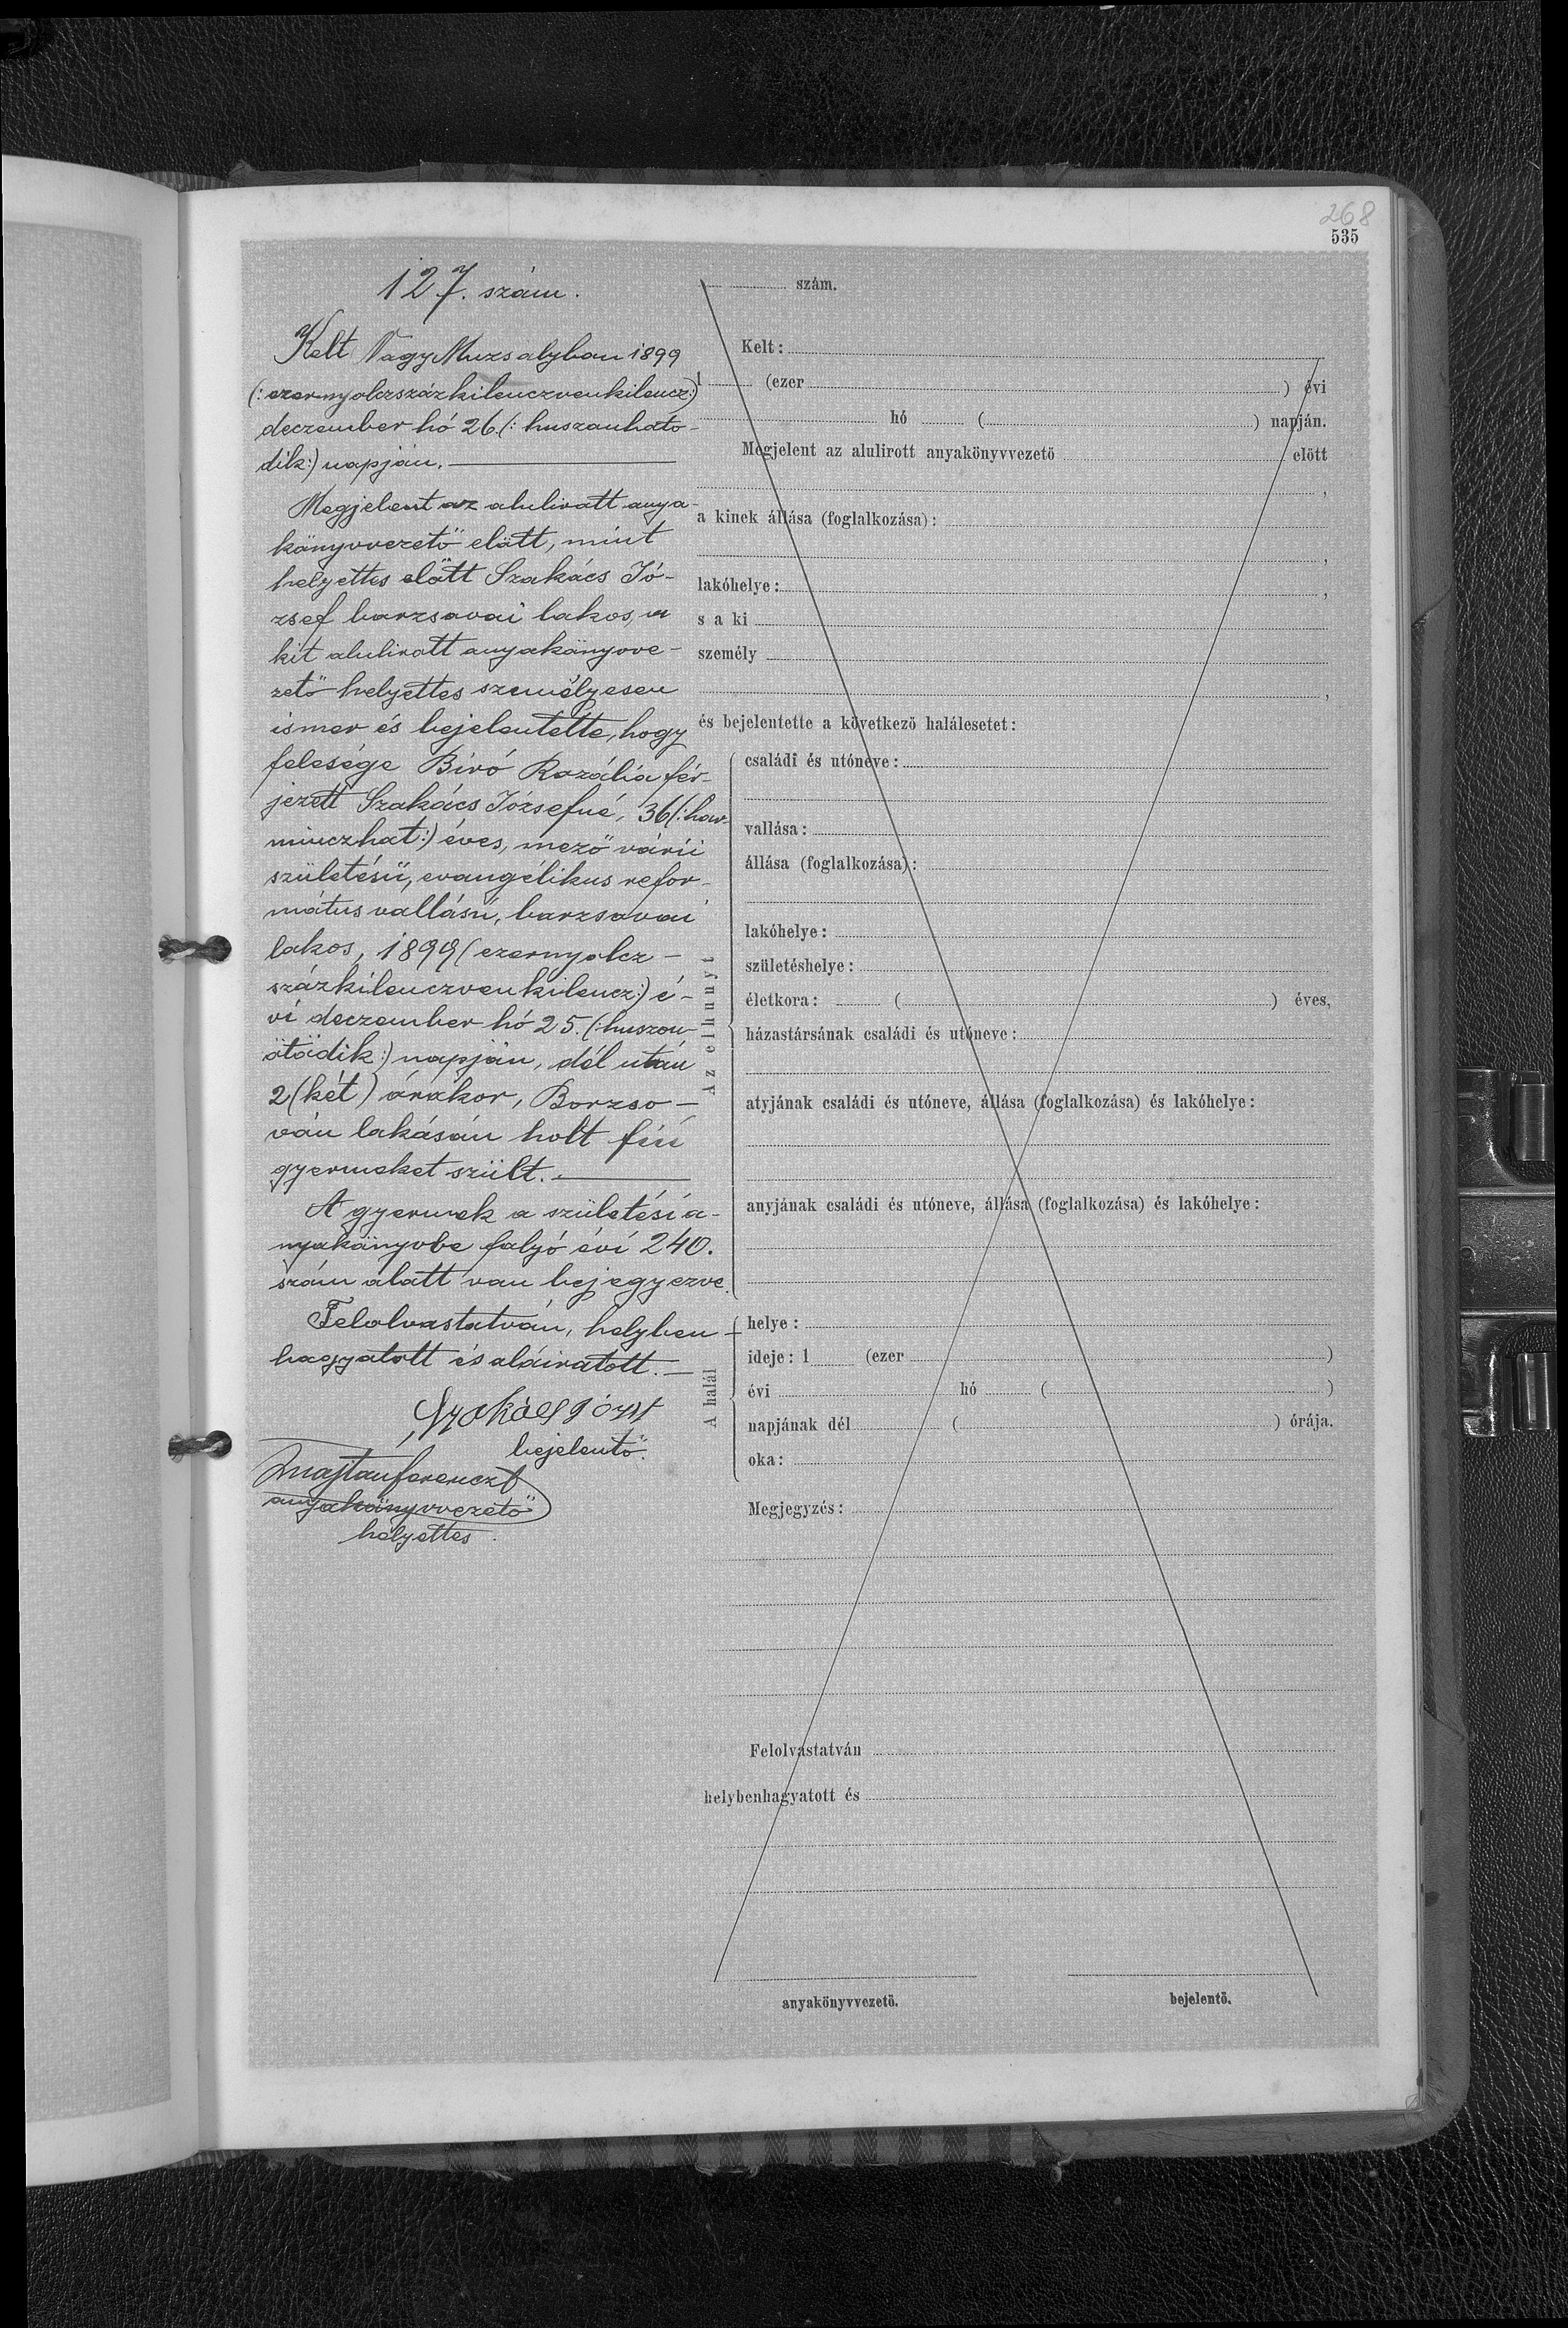 268
535
127. szám.
Kelt Nagy Muzsalyban 1899
(: ezernyolczszázkilenczvenkilencz:)
deczember hó 26 (: huszanhato-
dik:) napján.
Megjelent az aluliratt anya-
könyvvezető előtt, mint
helyettes előtt Szakács Jó-
zsef barzsavai lakos, a
kit aluliratt anyakönyvve-
zető helyettes személyesen
ismer és bejelentette, hogy
felesége Biró Rozália fér-
jezett Szakács Józsefné, 36 (: har-
minczhat:) éves, mező várii
születésű, evangélikus refor-
mátus vallású, barzsavai
lakos, 1899 (ezernyolcz-
százkilenczvenkilencz:) é-
vi deczember hó 25. (: huszon-
ötödik:) napján, dél után
2 (két) órakor, Borzso-
ván lakásán holt fiú
gyermeket szült.
A gyermek a születési a-
nyakönyvbe folyó évi 240.
szám alatt van bejegyezve.
Felolvastatván, helyben-
hagyatott és aláiratott.
Szakács Józsf
bejelentő.
Majtan ferencz
anyakönyvvezető
helyettes.
szám.
Kelt:
1 (ezer ) évi
hó ( ) napján.
Megjelent az alulirott anyakönyvvezető előtt
,
a kinek állása (foglalkozása):
,
lakóhelye: ,
s a ki
személy
,
és bejelentette a következő halálesetet:
Az elhunyt
családi és utóneve:
vallása:
állása (foglalkozása):
lakóhelye:
születéshelye:
életkora: ( ) éves,
házastársának családi és utóneve:
atyjának családi és utóneve, állása (foglalkozása) és lakóhelye:
anyjának családi és utóneve, állása (foglalkozása) és lakóhelye:
A halál
helye:
ideje: 1 (ezer )
évi hó ( )
napjának dél ( ) órája.
oka:
Megjegyzés:
Felolvastatván
helybenhagyatott és
anyakönyvvezető.
bejelentő.